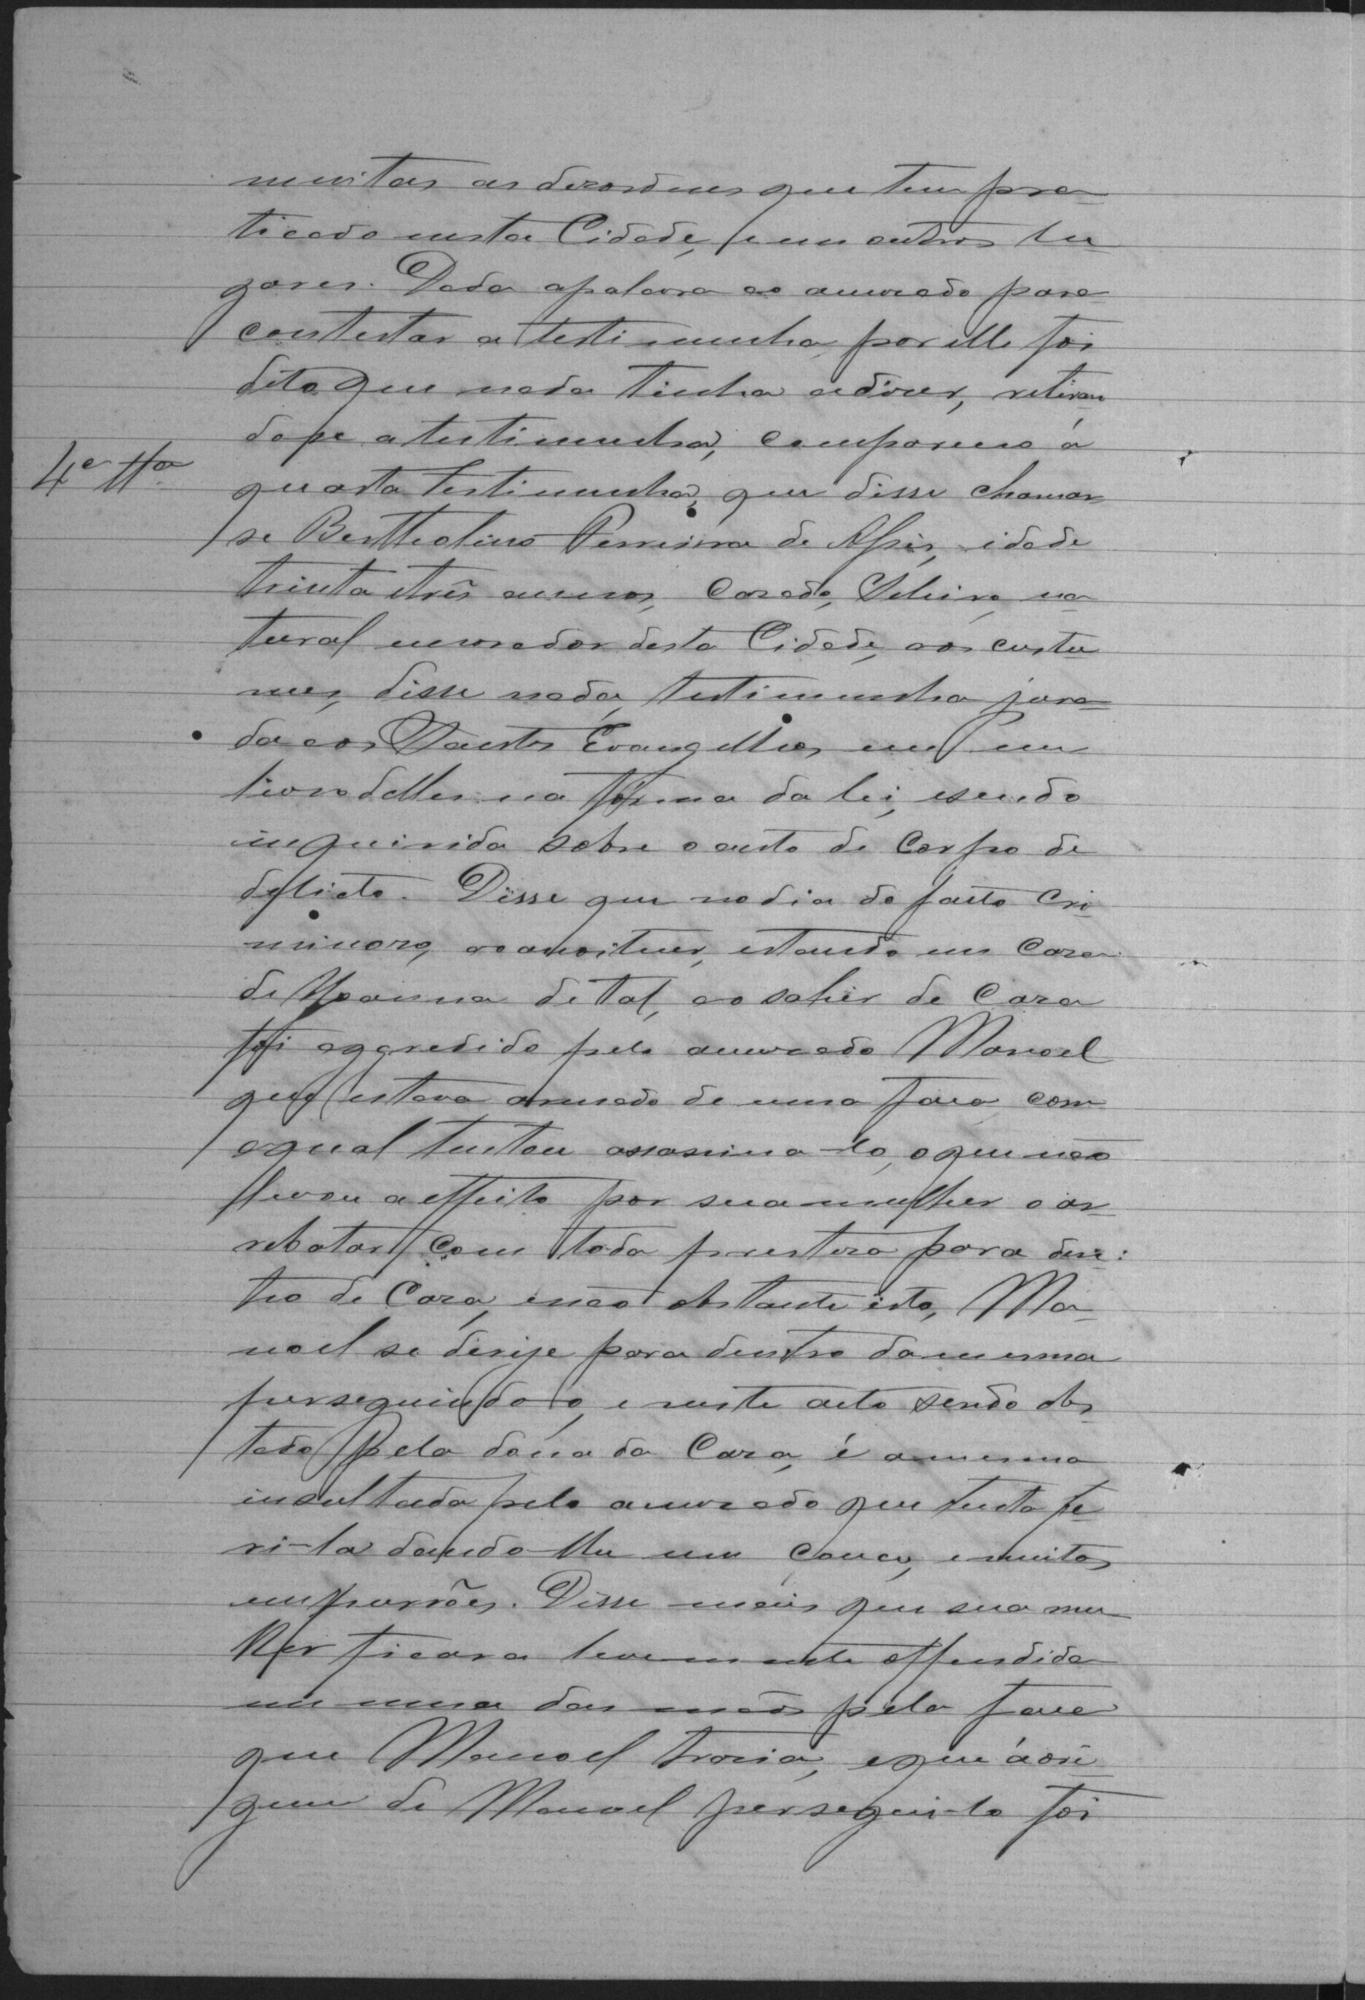 muitas as dezordens que tem pra-
ticado nesta Cidade, e em outros lu
gares. Dada apalavra ao accuzado para
contestar a testimunha, por elle foi
dito que nada tinha adizer, retiran
dose a testimunha, compareceo á
4ª Ttª
quarta testimunha, que disse chamar
se Bertholino Perreira de Assis, idade
trinta e três annos, Cazado, Seleiro, na
tural e morador desta Cidade, aos custu
mes, disse nada, testimunha jura-
da aos Santos Evangelhos, em um
livro delles na fórma da lei, esendo
inquirida sobre o auto de Corpo de
delicto. Disse que no dia do facto Cri
minozo, ao anoitecer, estando em Caza
de Joanna de tal, ao sahir de Caza
foi aggredido pelo accuzado Manoel
que estava armado de uma faca com
aqual tentou assasina-lo, o que não
levou a effeito por sua mulher o ar-
rebatar com toda presteza para den:
tro de Caza, e não obstante isto, Ma-
noel se dirije para dentro da mesma
perseguindo-o, e neste acto sendo obs
tado pela dona da Caza, é a mesma
insultada pelo accuzado que tenta fe-
ri-la dando-lhe um couce, e muitos
empurrões. Disse mais que sua mu-
lher ficara levemente offendida
em uma das mãos pela faca
que Manoel trazia, e que á ori
gem de Manoel persegui-lo foi